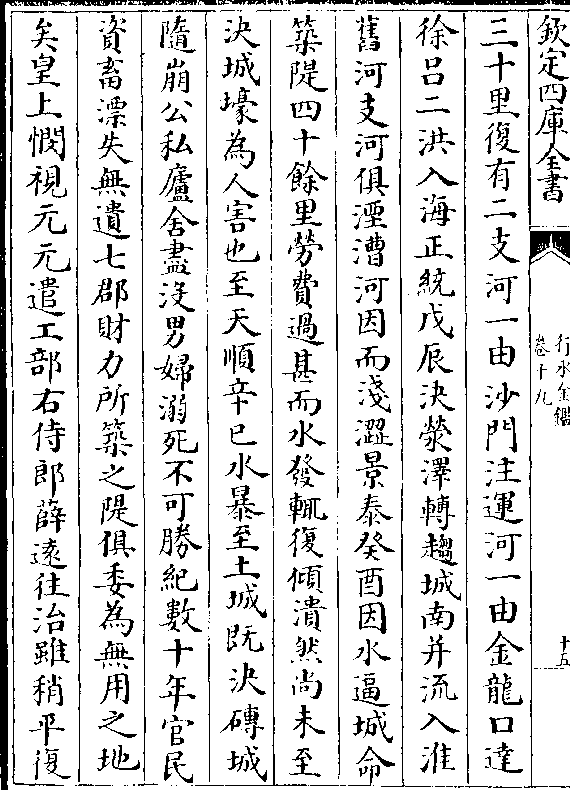 欽定四庫全書
行水金鑑
卷十九
十五
三十里復有二支河一由沙門注運河一由金龍口達
徐呂二洪入海正統戊辰決滎澤轉趨城南并流入淮
舊河支河俱湮漕河因而淺澀景泰癸酉因水逼城命
築隄四十餘里勞費過甚而水發輒復傾潰然尚未至
決城壕為人害也至天順辛巳水暴至土城既決磚城
隨崩公私廬舍盡沒男婦溺死不可勝紀數十年官民
資畜漂失無遺七郡財力所築之隄俱委為無用之地
矣皇上憫視元元遣工部右侍郎薛遠往治雖稍平復